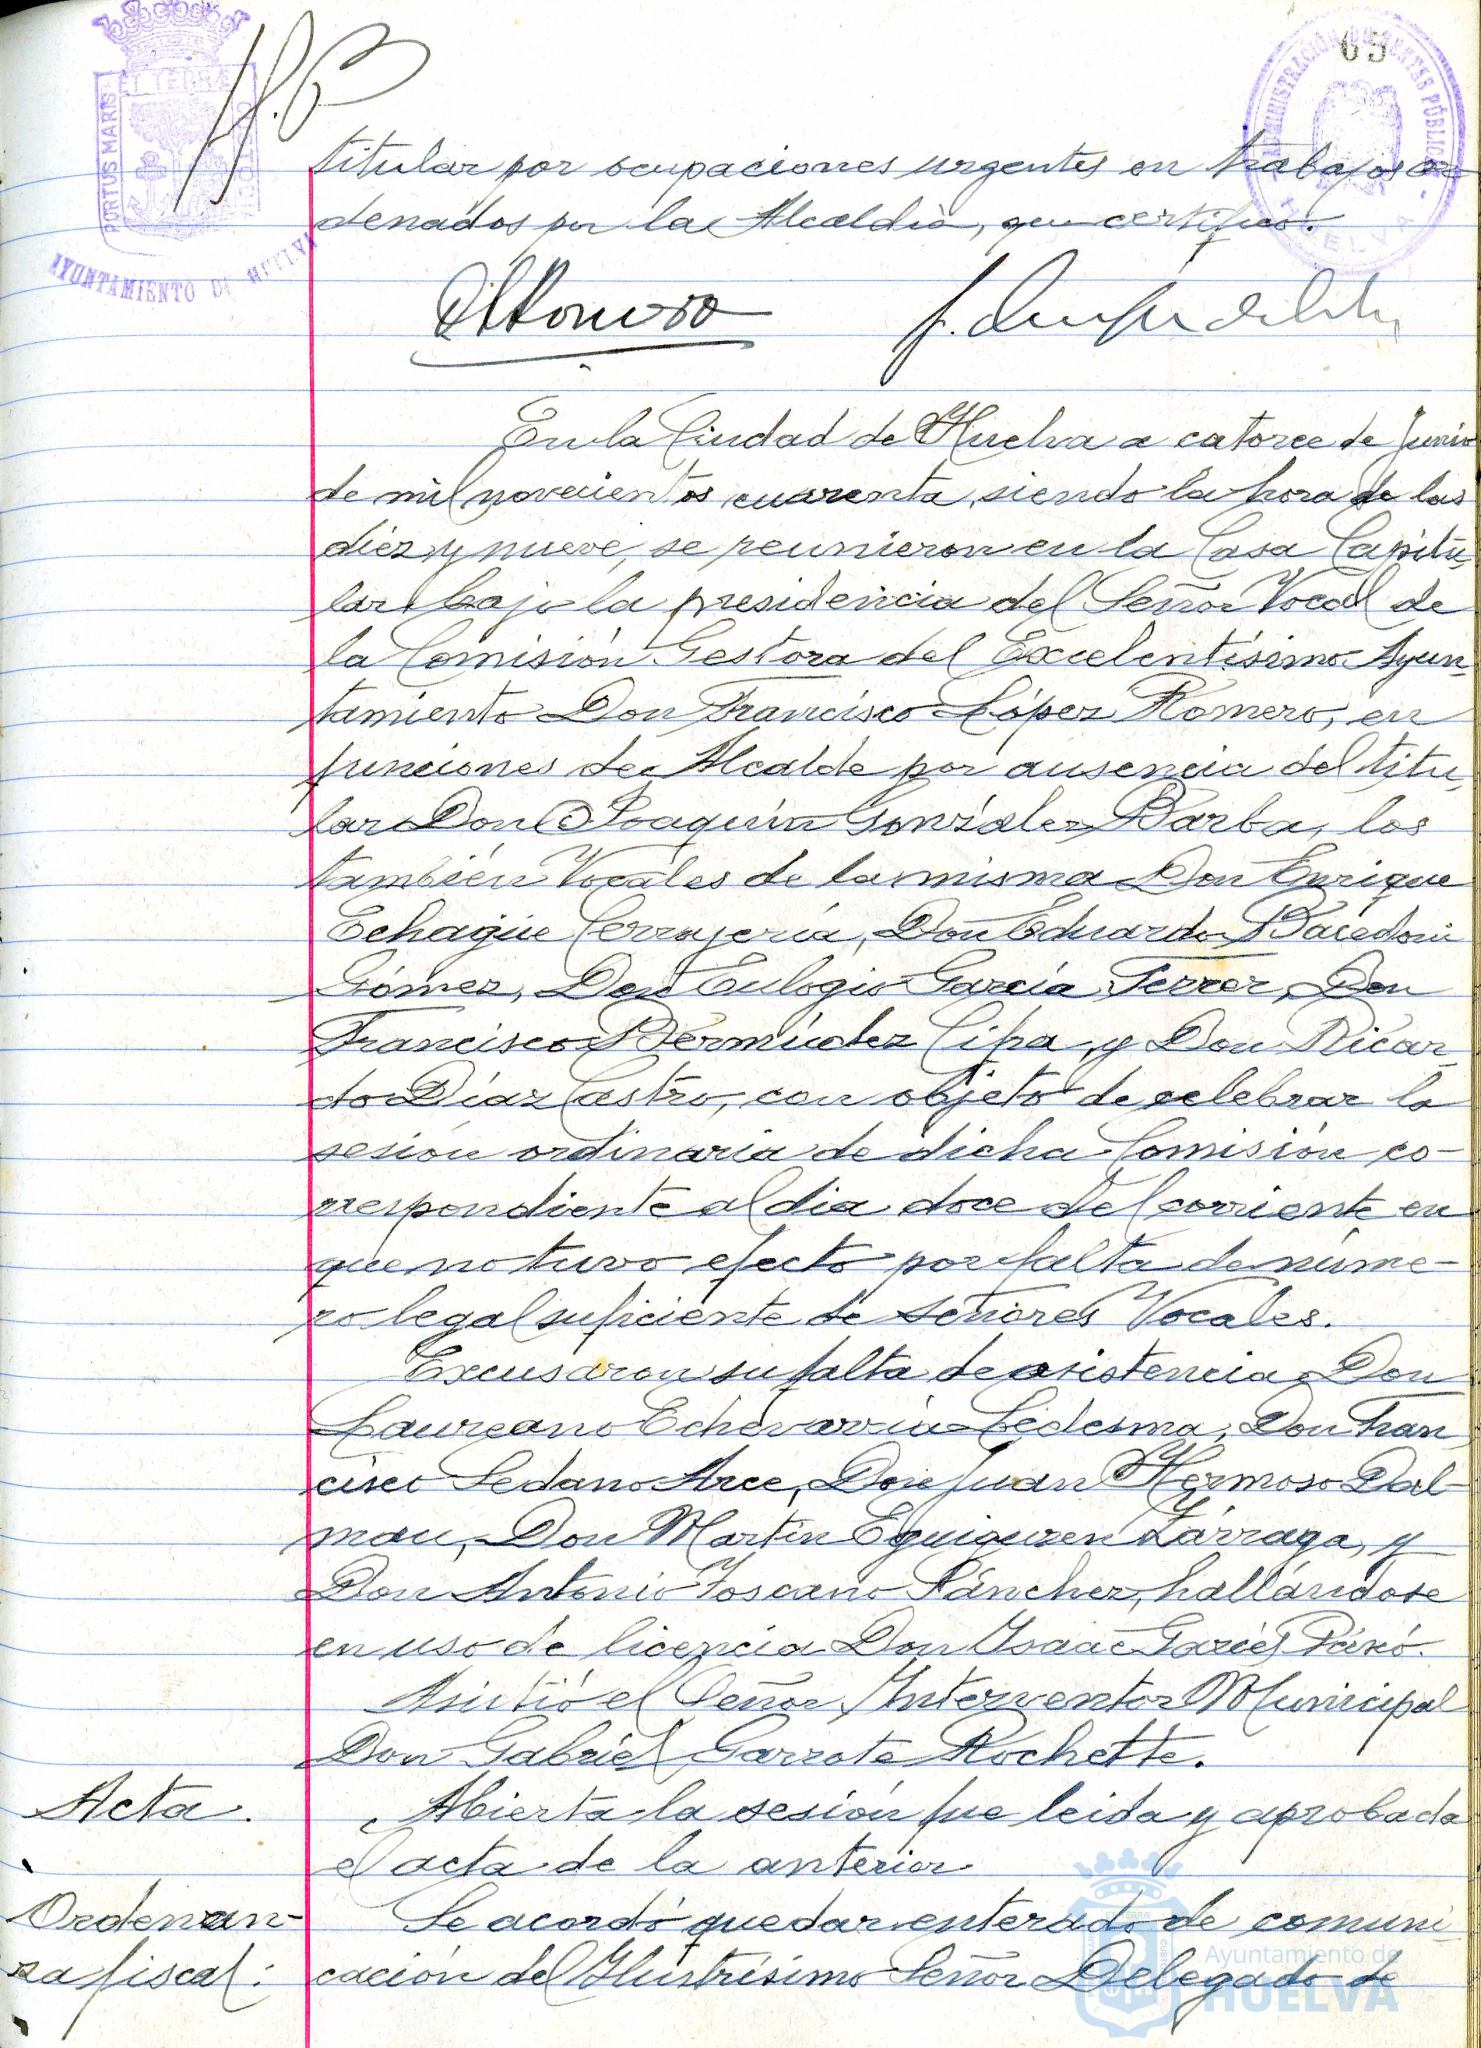 65
ET TERRÆ
PORTUS MARIS
CUSTODIA
AYUNTAMIENTO DE HUELVA
ADMINISTRACION DE RENTAS PÚBLICAS
HUELVA
titular por ocupaciones urgentes en trabajos or-
denados por la Alcaldía, que certifico.
En la Ciudad de Huelva a catorce de Junio
de mil novecientos cuarenta, siendo la hora de las
diez y nueve, se reunieron en la Casa Capitu-
lar bajo la presidencia del Señor Vocal de
la Comisión Gestora del Excelentísimo Ayun-
tamiento Don Francisco López Romero, en
funciones de Alcalde por ausencia del titu-
lar Don Joaquín González Barba, los
también Vocales de la misma Don Enrique
Echagüe Cerrajería, Don Eduardo Bacedoni
Gómez, Don Eulogio García Ferrer, Don
Francisco Bermúdez Cipa, y Don Ricar-
do Díaz Castro, con objeto de celebrar la
sesión ordinaria de dicha Comisión co-
rrespondiente al dia doce del corriente en
que no tuvo efecto por falta de núme-
ro legal suficiente de señores Vocales.
Excusaron su falta de asistencia Don
Laureano Echevarría Ledesma, Don Fran
cisco Sedano Arce, Don Juan Hermoso Dal-
mau, Don Martín Eguiguren Zárraga, y
Don Antonio Toscano Sánchez, hallándose
en uso de licencia Don Ysaac
Asistió el Señor Interventor Municipal
Don Gabriel Garrote Rochette.
Acta.
Abierta la sesión fue leida y aprobada
el acta de la anterior.
Ordenan-
za fiscal:
Se acordó quedar enterado de comuni-
cación del Ylustrísimo Señor Delegado de
Ayuntamiento de
HUELVA